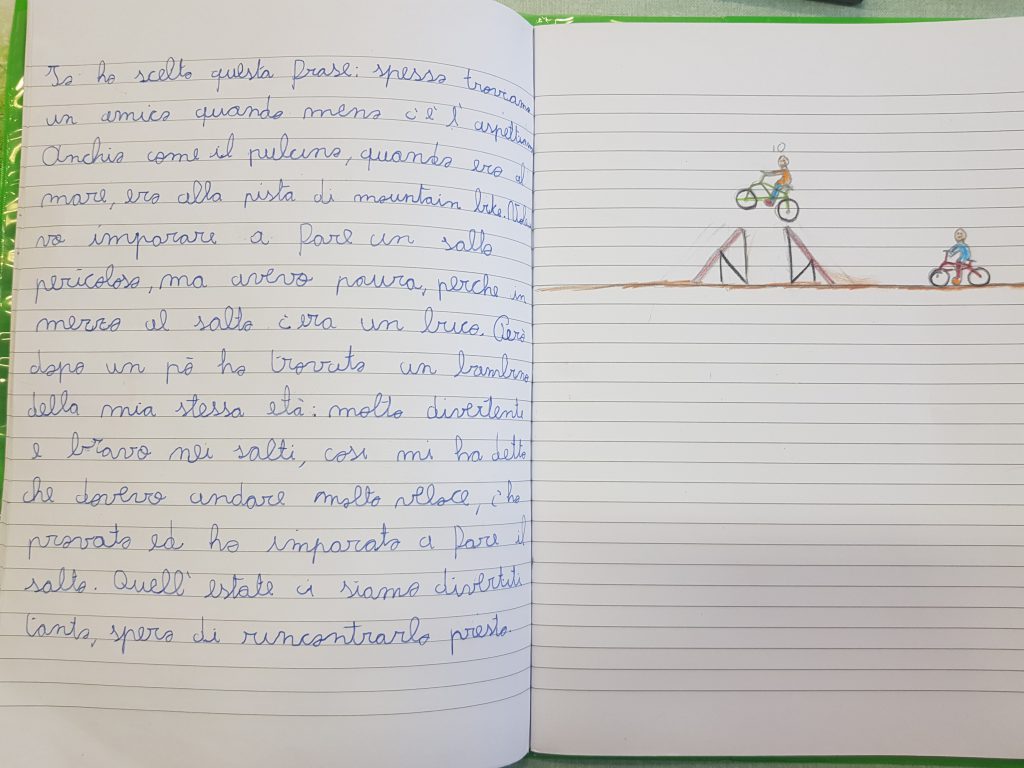 Io ho scelto questa frase: spesso troviamo
un amico quando meno c'è l'aspettiamo
Anchio come il pulcino, quando ero al
mare, ero alla pista di mountain bike. Vole
vo imparare a fare un salto
pericoloso, ma avevo paura, perche in
mezzo al salto c'era un buco. Però
dopo un pò ho trovato un bambino
della mia stessa età: molto divertente
e bravo nei salti, cosi mi ha detto
che dovevo andare molto veloce, c'ho
provato ed ho imparato a fare il
salto. Quell'estate ci siamo divertiti
tanto, spero di rincontrarlo presto.
IO